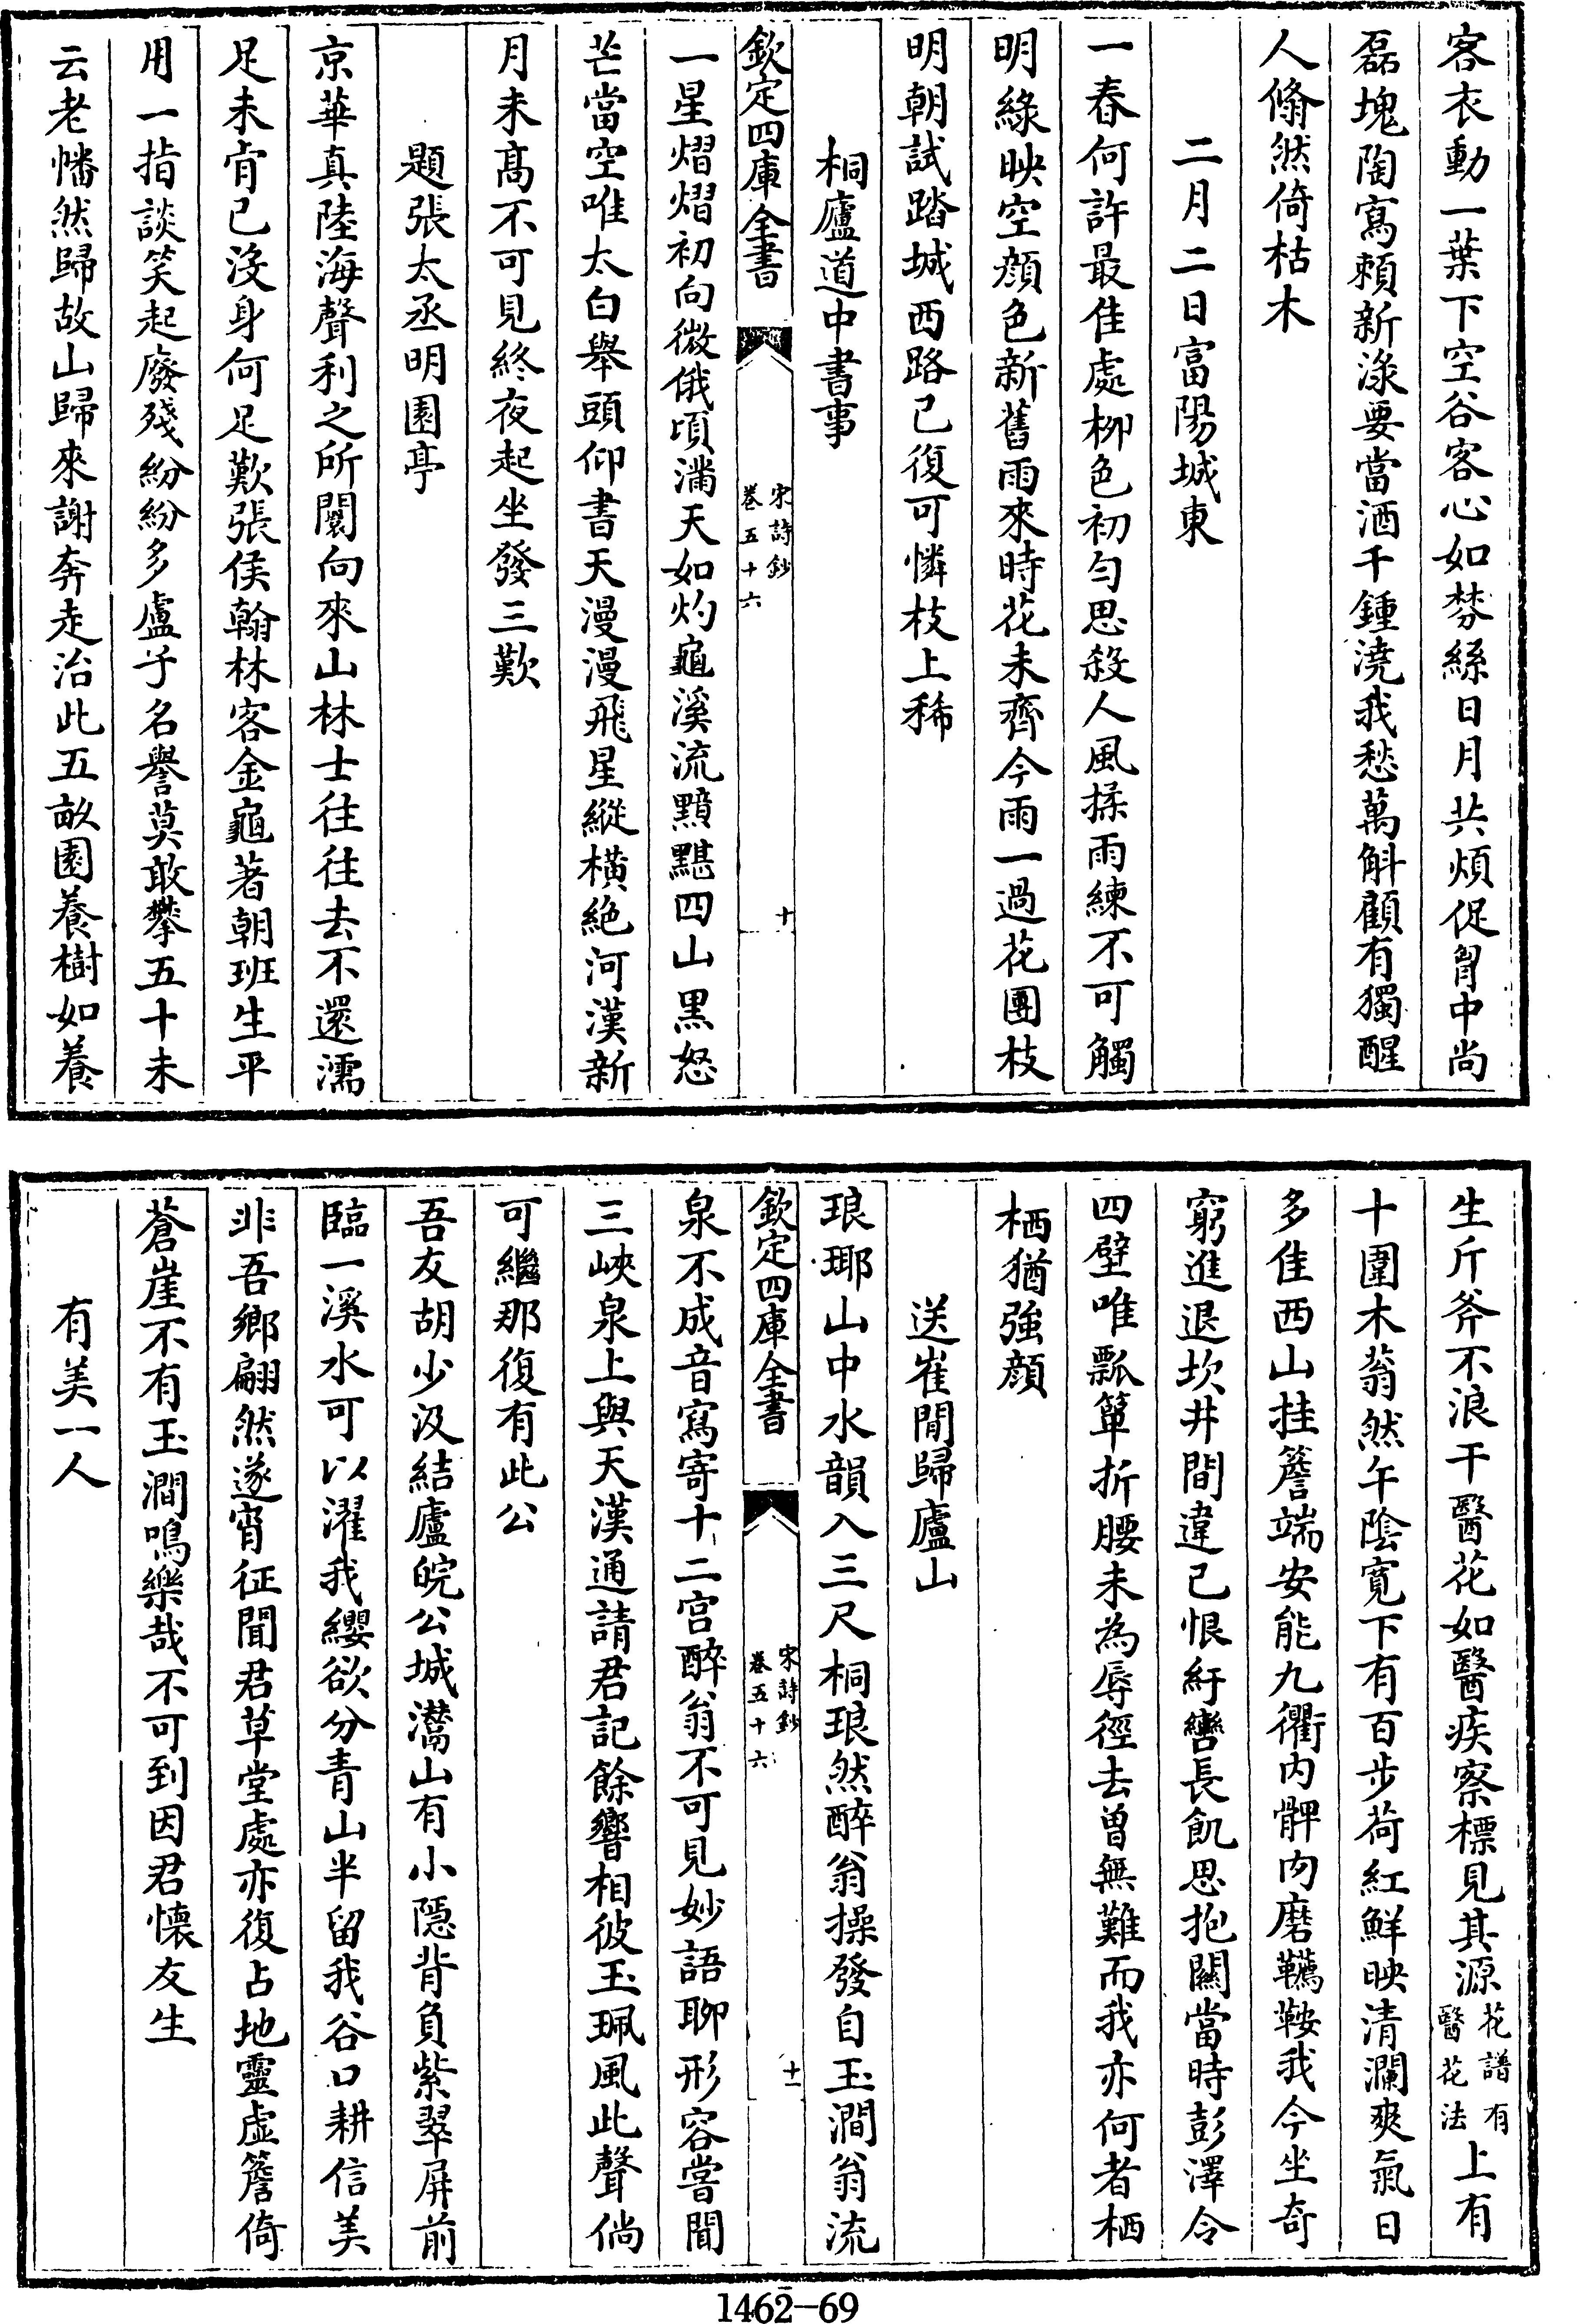 客衣動一葉下空谷客心如棼絲日月共煩促胷中尚
磊塊陶寫頼新渌要當酒千鍾澆我愁萬斛顧有獨醒
人翛然倚枯木
二月二日富陽城東
一春何許最佳處柳色初勻思殺人風揉雨練不可觸
明綠映空顔色新舊雨來時花未齊今雨一過花團枝
明朝試踏城西路已復可憐枝上稀
桐廬道中書事
欽定四庫全書
宋詩鈔
卷五十六
十
一星熠熠初向微俄頃滿天如灼龜溪流黯黮四山黒怒
芒當空唯太白舉頭仰書天漫漫飛星縱橫絶河漢新
月未髙不可見終夜起坐發三歎
題張太丞明園亭
京華真陸海聲利之所闤向來山林士往往去不還濡
足未肯已沒身何足歎張侯翰林客金龜著朝班生平
用一指談笑起廢殘紛紛多盧子名譽莫敢攀五十未
云老幡然歸故山歸來謝奔走治此五畝園養樹如養
生斤斧不浪干醫花如醫疾察標見其源花譜有醫花法上有
十圍木蓊然午陰寛下有百步荷紅鮮映清瀾爽氣日
多佳西山挂簷端安能九衢内髀肉磨韉鞍我今坐奇
窮進退坎井間違己恨紆轡長飢思抱關當時彭澤令
四壁唯瓢簞折腰未為辱徑去曽無難而我亦何者栖
栖猶強顔
送崔閒歸廬山
琅琊山中水韻入三尺桐琅然醉翁操發自玉澗翁流
欽定四庫全書
宋詩鈔
卷五十六
十一
泉不成音寫寄十二宫醉翁不可見妙語聊形容嘗聞
三峽泉上與天漢通請君記餘響相彼玉珮風此聲倘
可繼那復有此公
吾友胡少汲結廬皖公城灊山有小隱背負紫翠屏前
臨一溪水可以濯我纓欲分青山半留我谷口耕信美
非吾鄉翩然遂宵征聞君草堂處亦復占地靈虚簷倚
蒼崖不有玉澗鳴樂哉不可到因君懐友生
有美一人
1462-69